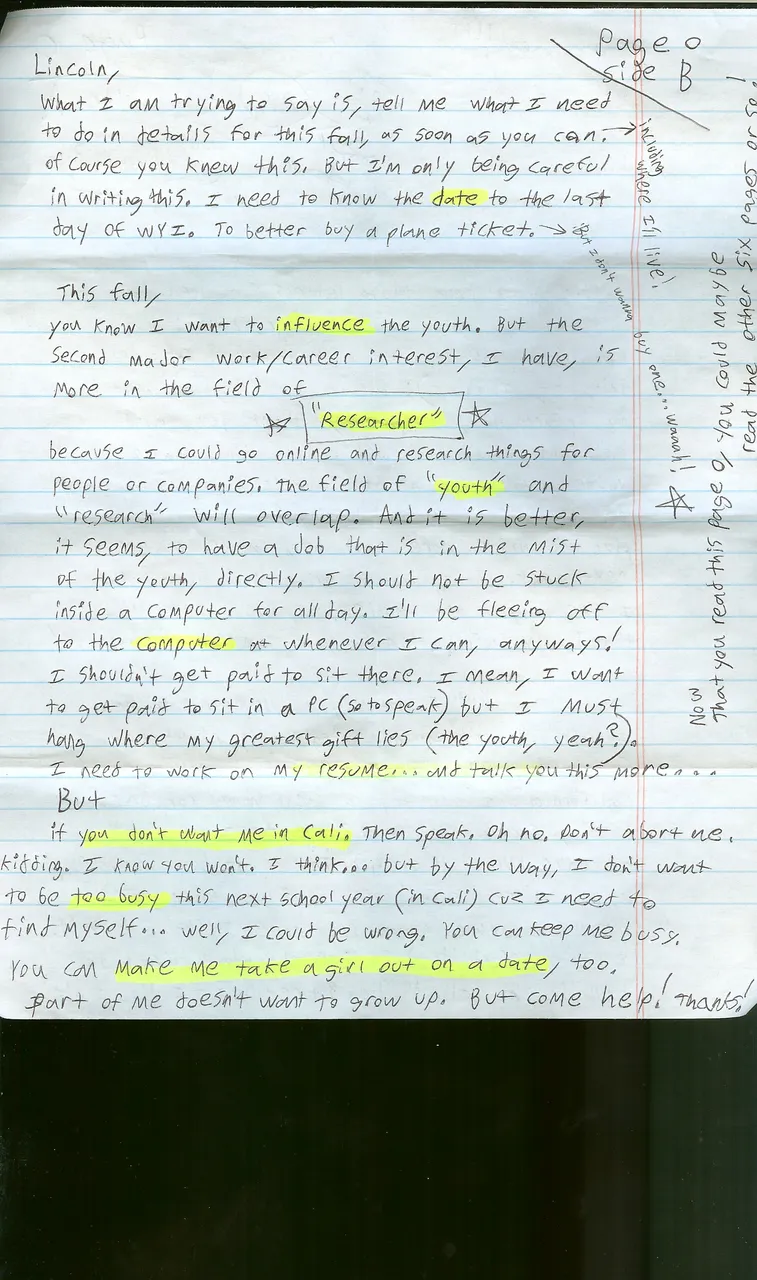 Page 0
side B
Lincoln,
What I am trying to say is, tell me what I need
to do in details for this fall, as soon as you can. →
including where I'll live!
of course you knew this. But I'm only being careful
in writing this. I need to know the date to the last
day of WYI. To better buy a plane ticket. →
But I don't wanna buy one... waaah!
This fall,
you know I want to influence the youth. But the
second major work/career interest, I have, is
more in the field of
☆ "Researcher" ☆
because I could go online and research things for
people or companies. The field of "youth" and
"research" will overlap. And it is better,
it seems, to have a job that is in the mist
of the youth, directly. I should not be stuck
inside a computer for all day. I'll be fleeing off
to the computer at whenever I can, anyways!
I shouldn't get paid to sit there. I mean, I want
to get paid to sit in a PC (so to speak) but I must
hang where my greatest gift lies (the youth, yeah?).
I need to work on my resume... and talk you this more....
But
if you don't want me in Cali. Then speak. Oh no. Don't abort me.
kidding. I know you won't. I think... but by the way, I don't want
to be too busy this next school year (in Cali) cuz I need to
find myself... well, I could be wrong. You can keep me busy.
You can make me take a girl out on a date, too.
Part of me doesn't want to grow up. But come help! Thanks!
☆
Now
That you read this page 0, you could maybe
read the other six pages or so!